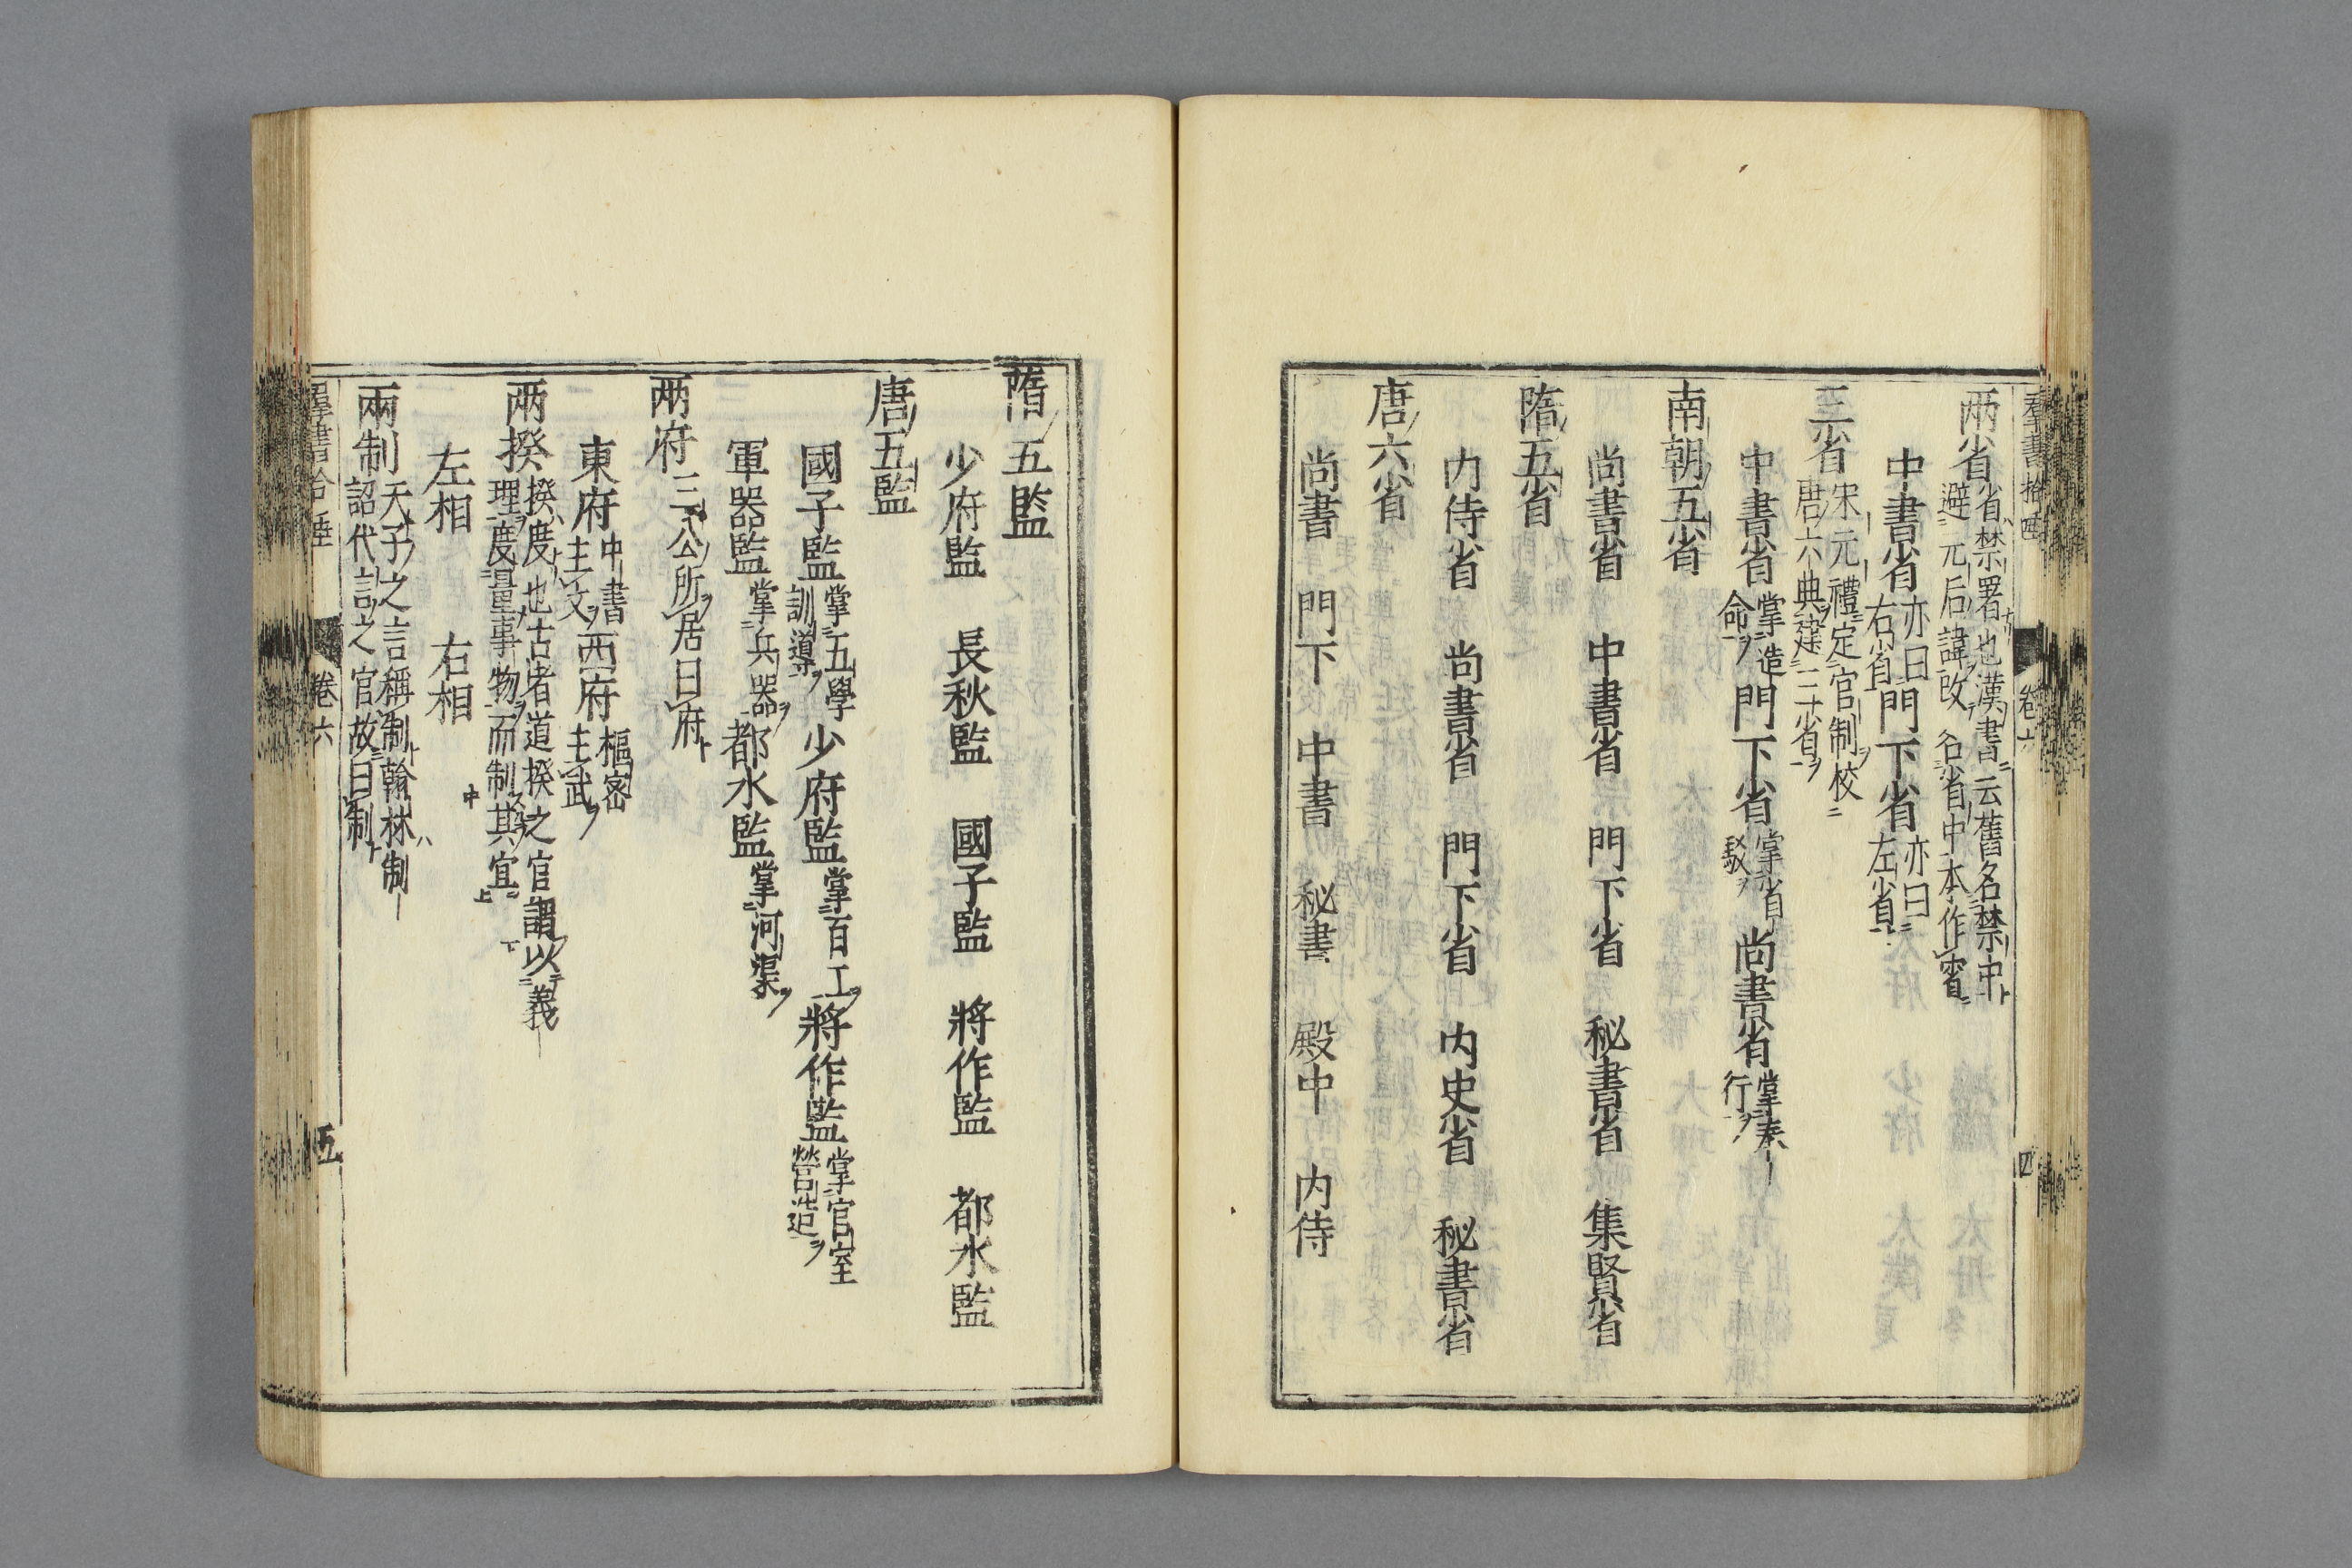 群書拾唾 卷六 四
兩省省禁署也漢書云舊名禁中
避元后諱改名省中本作㝮
中書省亦曰右省門下省亦曰左省
三省宋元禮定官制校
唐六典建三省
中書省掌造命門下省掌省駁尚書省掌奏行
南朝五省
尚書省 中書省 門下省 秘書省 集賢省
隋五省
内侍省 尚書省 門下省 内史省 秘書省
唐六省
尚書 門下 中書 秘書 殿中 内侍
隋五監
少府監 長秋監 國子監 將作監 都水監
唐五監
國子監掌五學訓導少府監掌百工將作監掌官室營造
軍器監掌兵器都水監掌河渠
兩府三公所居曰府
東府中書主文西府樞密主武
兩揆揆度也古者道揆之官謂以義
理度量事物而制其宜
左相 右相
兩制天子之言稱制翰林制
詔代言之官故曰制
群書拾唾 卷六 五